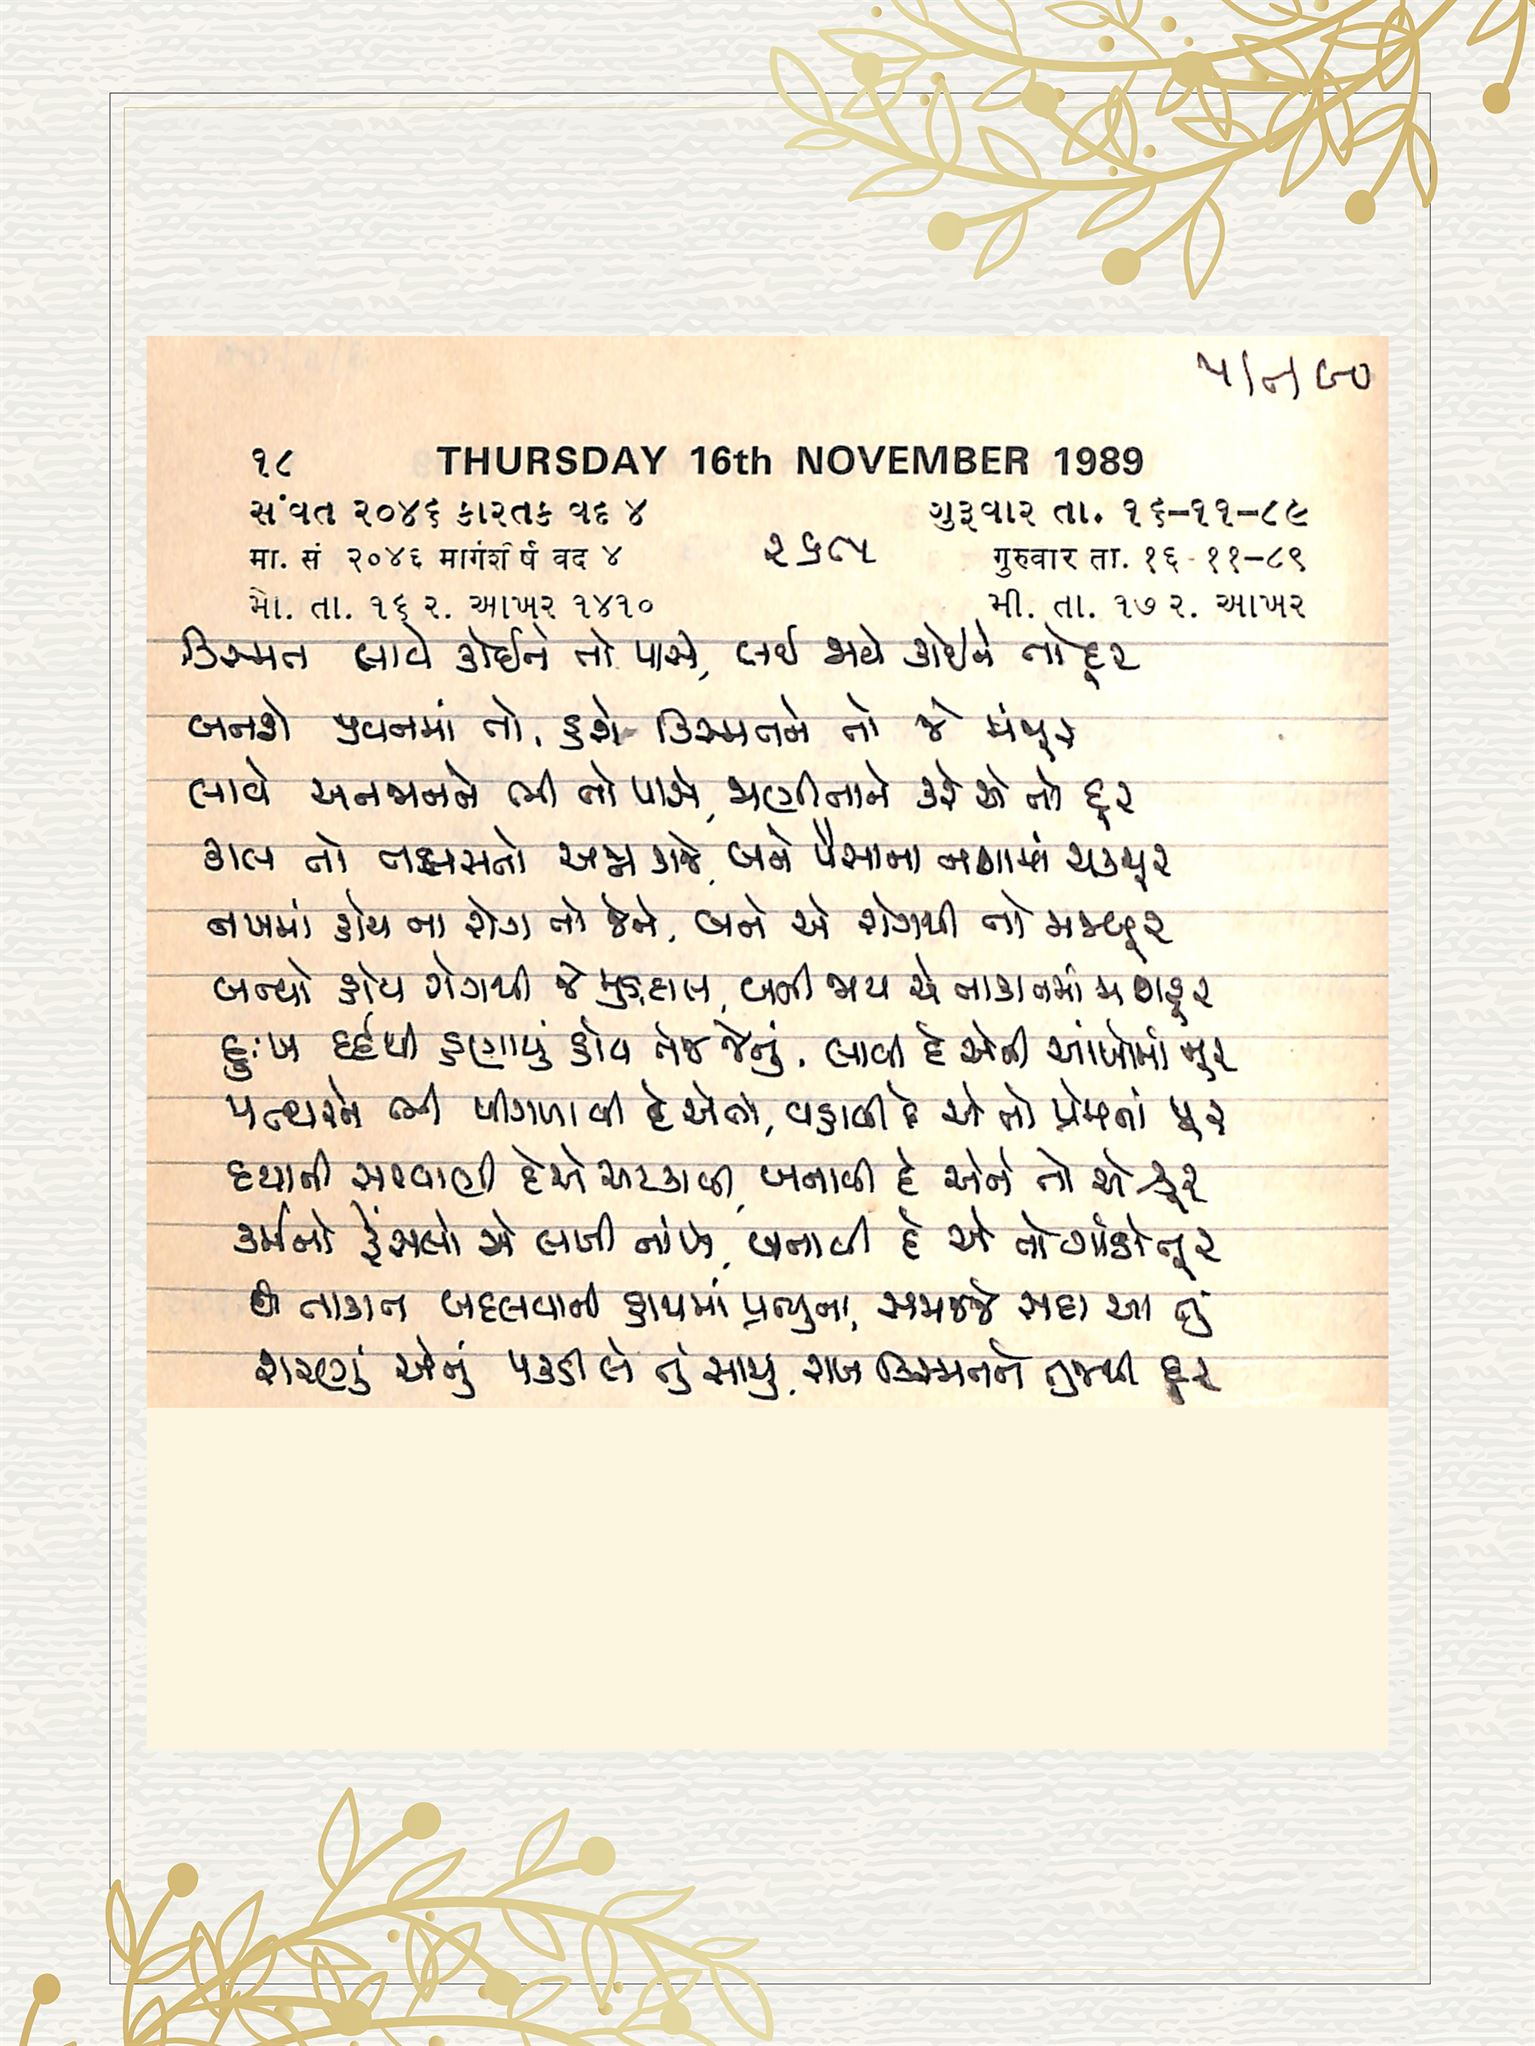 ૧૮ THURSDAY 16th NOVEMBER 1989
સંવત ૨૦૪૬ કારતક વદ ૪ ગુરૂવાર તા. ૧૬-૧૧-૮૯
મા. સં ૨૦૪૬ मार्गशीर्ष वद ४ गुरुवार ता. १६-११-८९
૨૬૯૫
મો. તા. ૧૬ ર. આખર ૧૪૧૦ મી. તા. ૧૭ ર. આખર
કિસ્મત લાવે કોઈને તો પાસે, લઈ જાયે કોઈને તો દૂર
બનશે જીવનમાં તો, હશે કિસ્મતને તો જે મંજૂર
લાવે અનજાનને ભી તો પાસે, જાણીતાને કરે એ તો દૂર
કાલ તો આજે, બને પૈસાના નશામાં ચકચૂર
નખમાં હોય ના રોગ તો જેને, બને એ રોગથી તો મજબૂર
બન્યો હોય રોગથી જે બની જાય એ તાકાતમાં મશહૂર
દુઃખ દર્દથી હણાયું હોય તેજ જેનું, લાવી દે એની આંખોમાં નૂર
પત્થરને ભી પીગળાવી દે એતો, વહાવી દે એ તો પ્રેમનાં પૂર
દયાની સરવાણી દે એ અટકાવી, બનાવી દે એને તો એ ક્રૂર
કર્મનો ફેંસલો એ લખી નાંખે, બનાવી દે એ તો
તાકાત બદલવાની હાથમાં પ્રભુના, સમજજે સદા આ તું
શરણું એનું પકડી લે તું સાચું, રાખ કિસ્મતને તુજથી દૂર